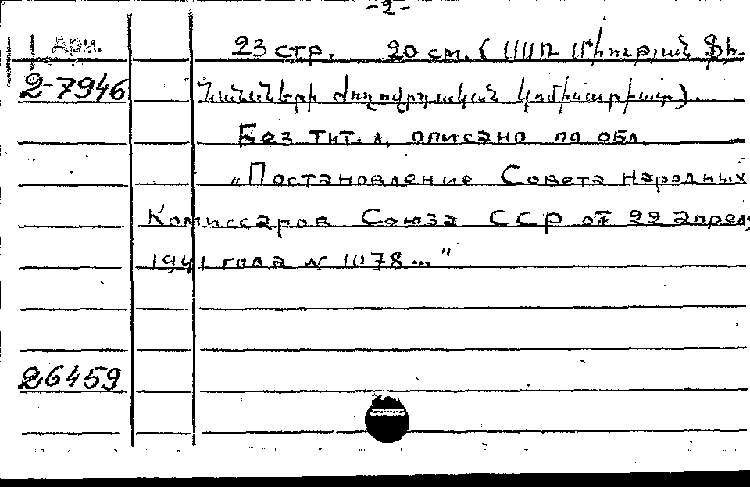 -2-
Арм. 23 стр. 20 см. (ՍՍՌ Միության Ֆի-
2-7946 նանսների ժողովրդական կոմիսարիատ).
Без тит. л. описано по обл.
„Постановление Совета народных
Комиссаров Союза ССР от 22 апреля
1941 года № 1078..."
26459